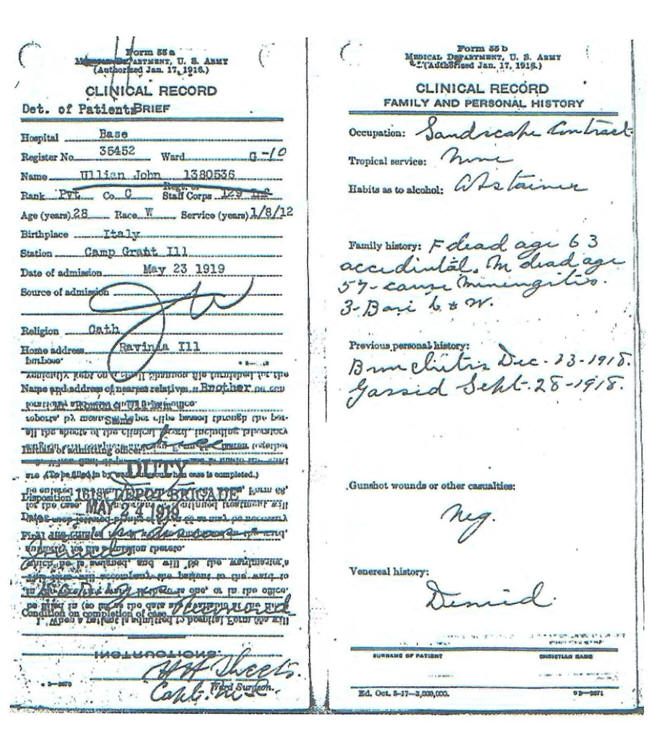 Form 55a
MEDICAL DEPARTMENT, U. S. ARMY
(Authorized Jan. 17, 1916.)
CLINICAL RECORD
Det. of Patients BRIEF
Hospital Base
Register No. 35452 Ward G-10
Name Ullian John 1380536
Rank Pvt Co. C Regt. or Staff Corps 129 Inf
Age (years) 28 Race W Service (years) 1/8/12
Birthplace Italy
Station Camp Grant Ill
Date of admission May 23 1919
Source of admission
Religion Cath
Home address Ravinia Ill
Name and address of nearest relative Brother
Same
Initials of admitting officer
(To be filled in by ward surgeon when case is completed.)
DUTY
Disposition 161st DEPOT BRIGADE
Date MAY 24 1919
Condition on completion of case
INSTRUCTIONS:
H H Sheets.
Capt. M.C. Ward Surgeon.
Form 55b
MEDICAL DEPARTMENT, U. S. ARMY
(Authorized Jan. 17, 1916.)
CLINICAL RECORD
FAMILY AND PERSONAL HISTORY
Occupation: Landscape Contract
Tropical service: None
Habits as to alcohol: Abstainer
Family history: F dead age 63
accidental. M dead age
57- cause Miningitis.
3- Bro L & W.
Previous personal history:
Bronchitis Dec-23-1918.
Gassed Sept-28-1918.
Gunshot wounds or other casualties:
Neg.
Venereal history:
Denied.
SURNAME OF PATIENT CHRISTIAN NAME
Ed. Oct. 5-17—3,000,000.